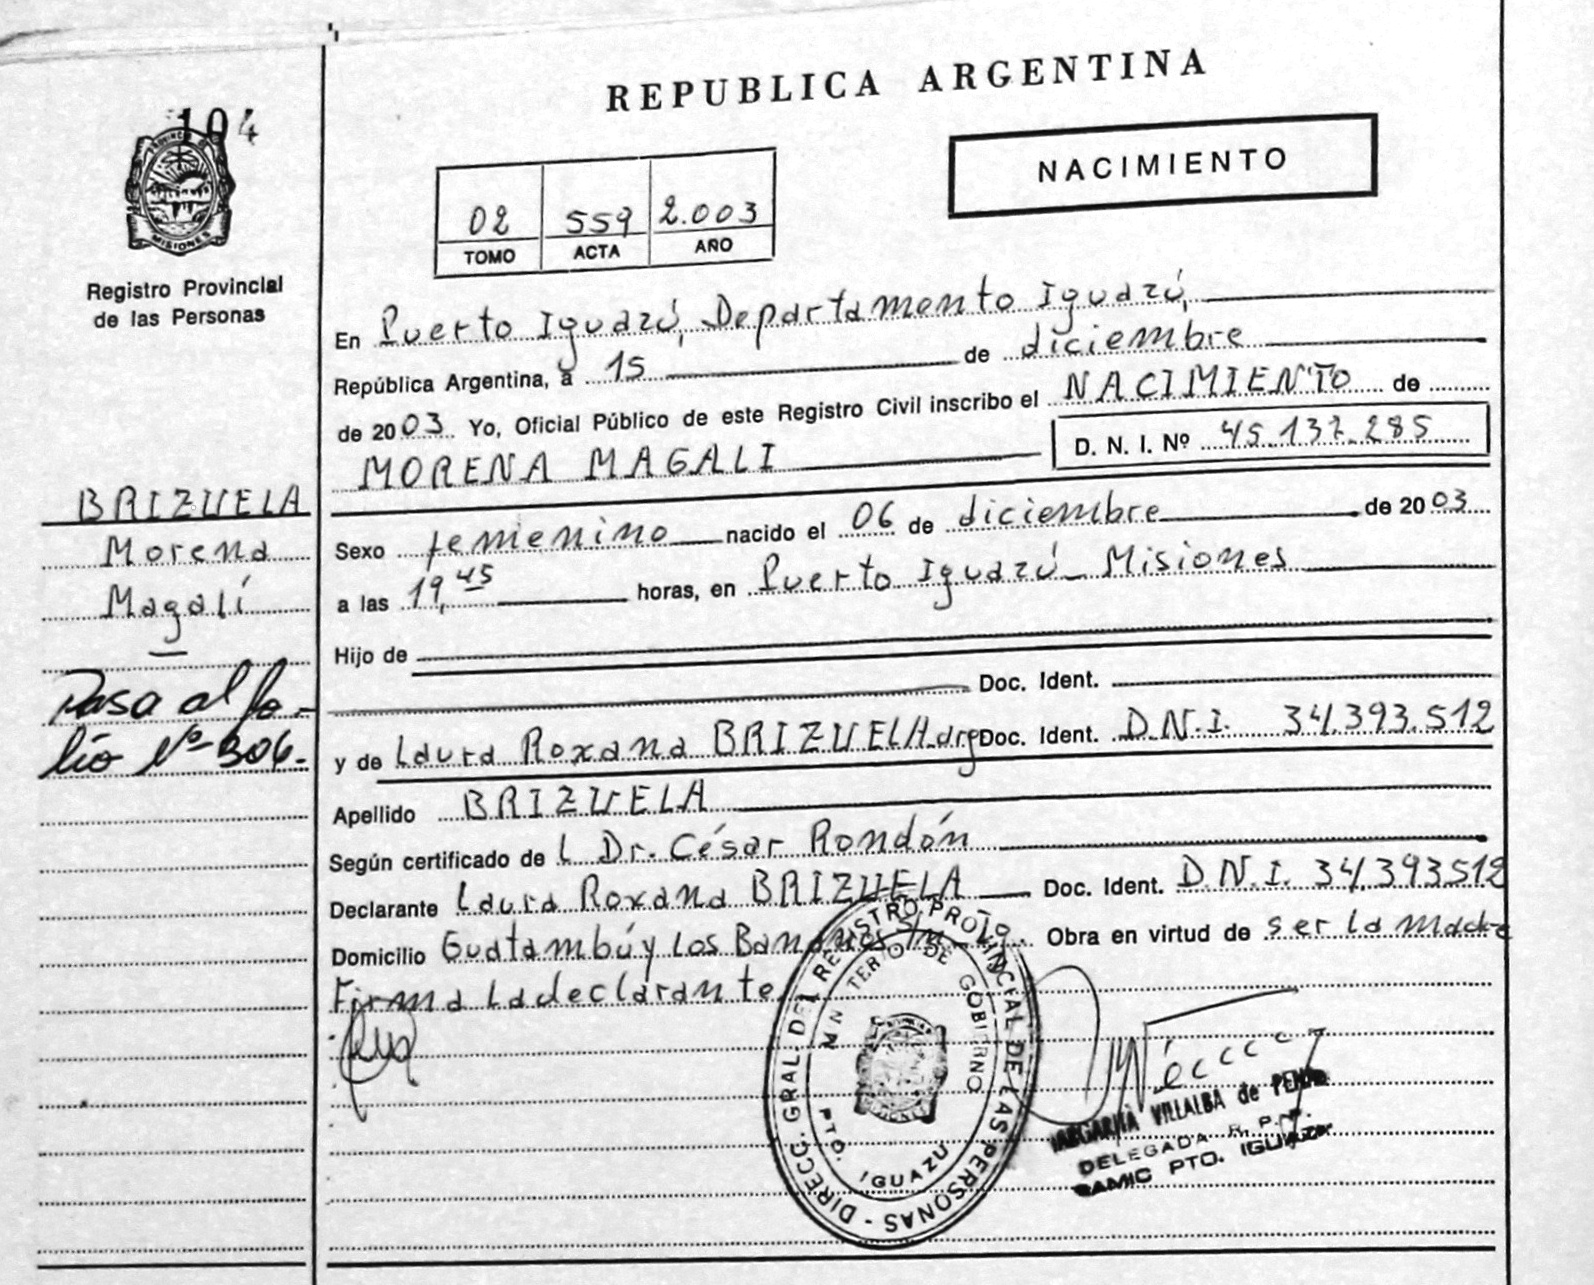 104
REPUBLICA ARGENTINA
NACIMIENTO
02 559 2.003
TOMO ACTA AÑO
PROVINCIA DE MISIONES
Registro Provincial
de las Personas
En Puerto Iguazú, Departamento Iguazú,
República Argentina, a 15 de diciembre
de 2003 Yo, Oficial Público de este Registro Civil inscribo el NACIMIENTO de
MORENA MAGALI D. N. I. Nº 45.137.285
BRIZUELA
Morena
Magalí
Pasa al fo-
lio Nº 306.-
Sexo femenino nacido el 06 de diciembre de 2003
a las 19,45 horas, en Puerto Iguazú - Misiones
Hijo de
Doc. Ident.
y de Laura Roxana BRIZUELA arg Doc. Ident. D.N.I. 34.393.512
Apellido BRIZUELA
Según certificado de L Dr. César Rondón
Declarante Laura Roxana BRIZUELA Doc. Ident. D.N.I. 34.393512
Domicilio Guatambú y Los Bananos S/n - Ig. Obra en virtud de ser la madre
Firma La declarante
DIRECC. GRAL. DEL REGISTRO PROVINCIAL DE LAS PERSONAS -
MINISTERIO DE GOBIERNO
PTO. IGUAZU
VILLALBA de
DELEGADA R. P. P.
SAMIC PTO. IGUAZU